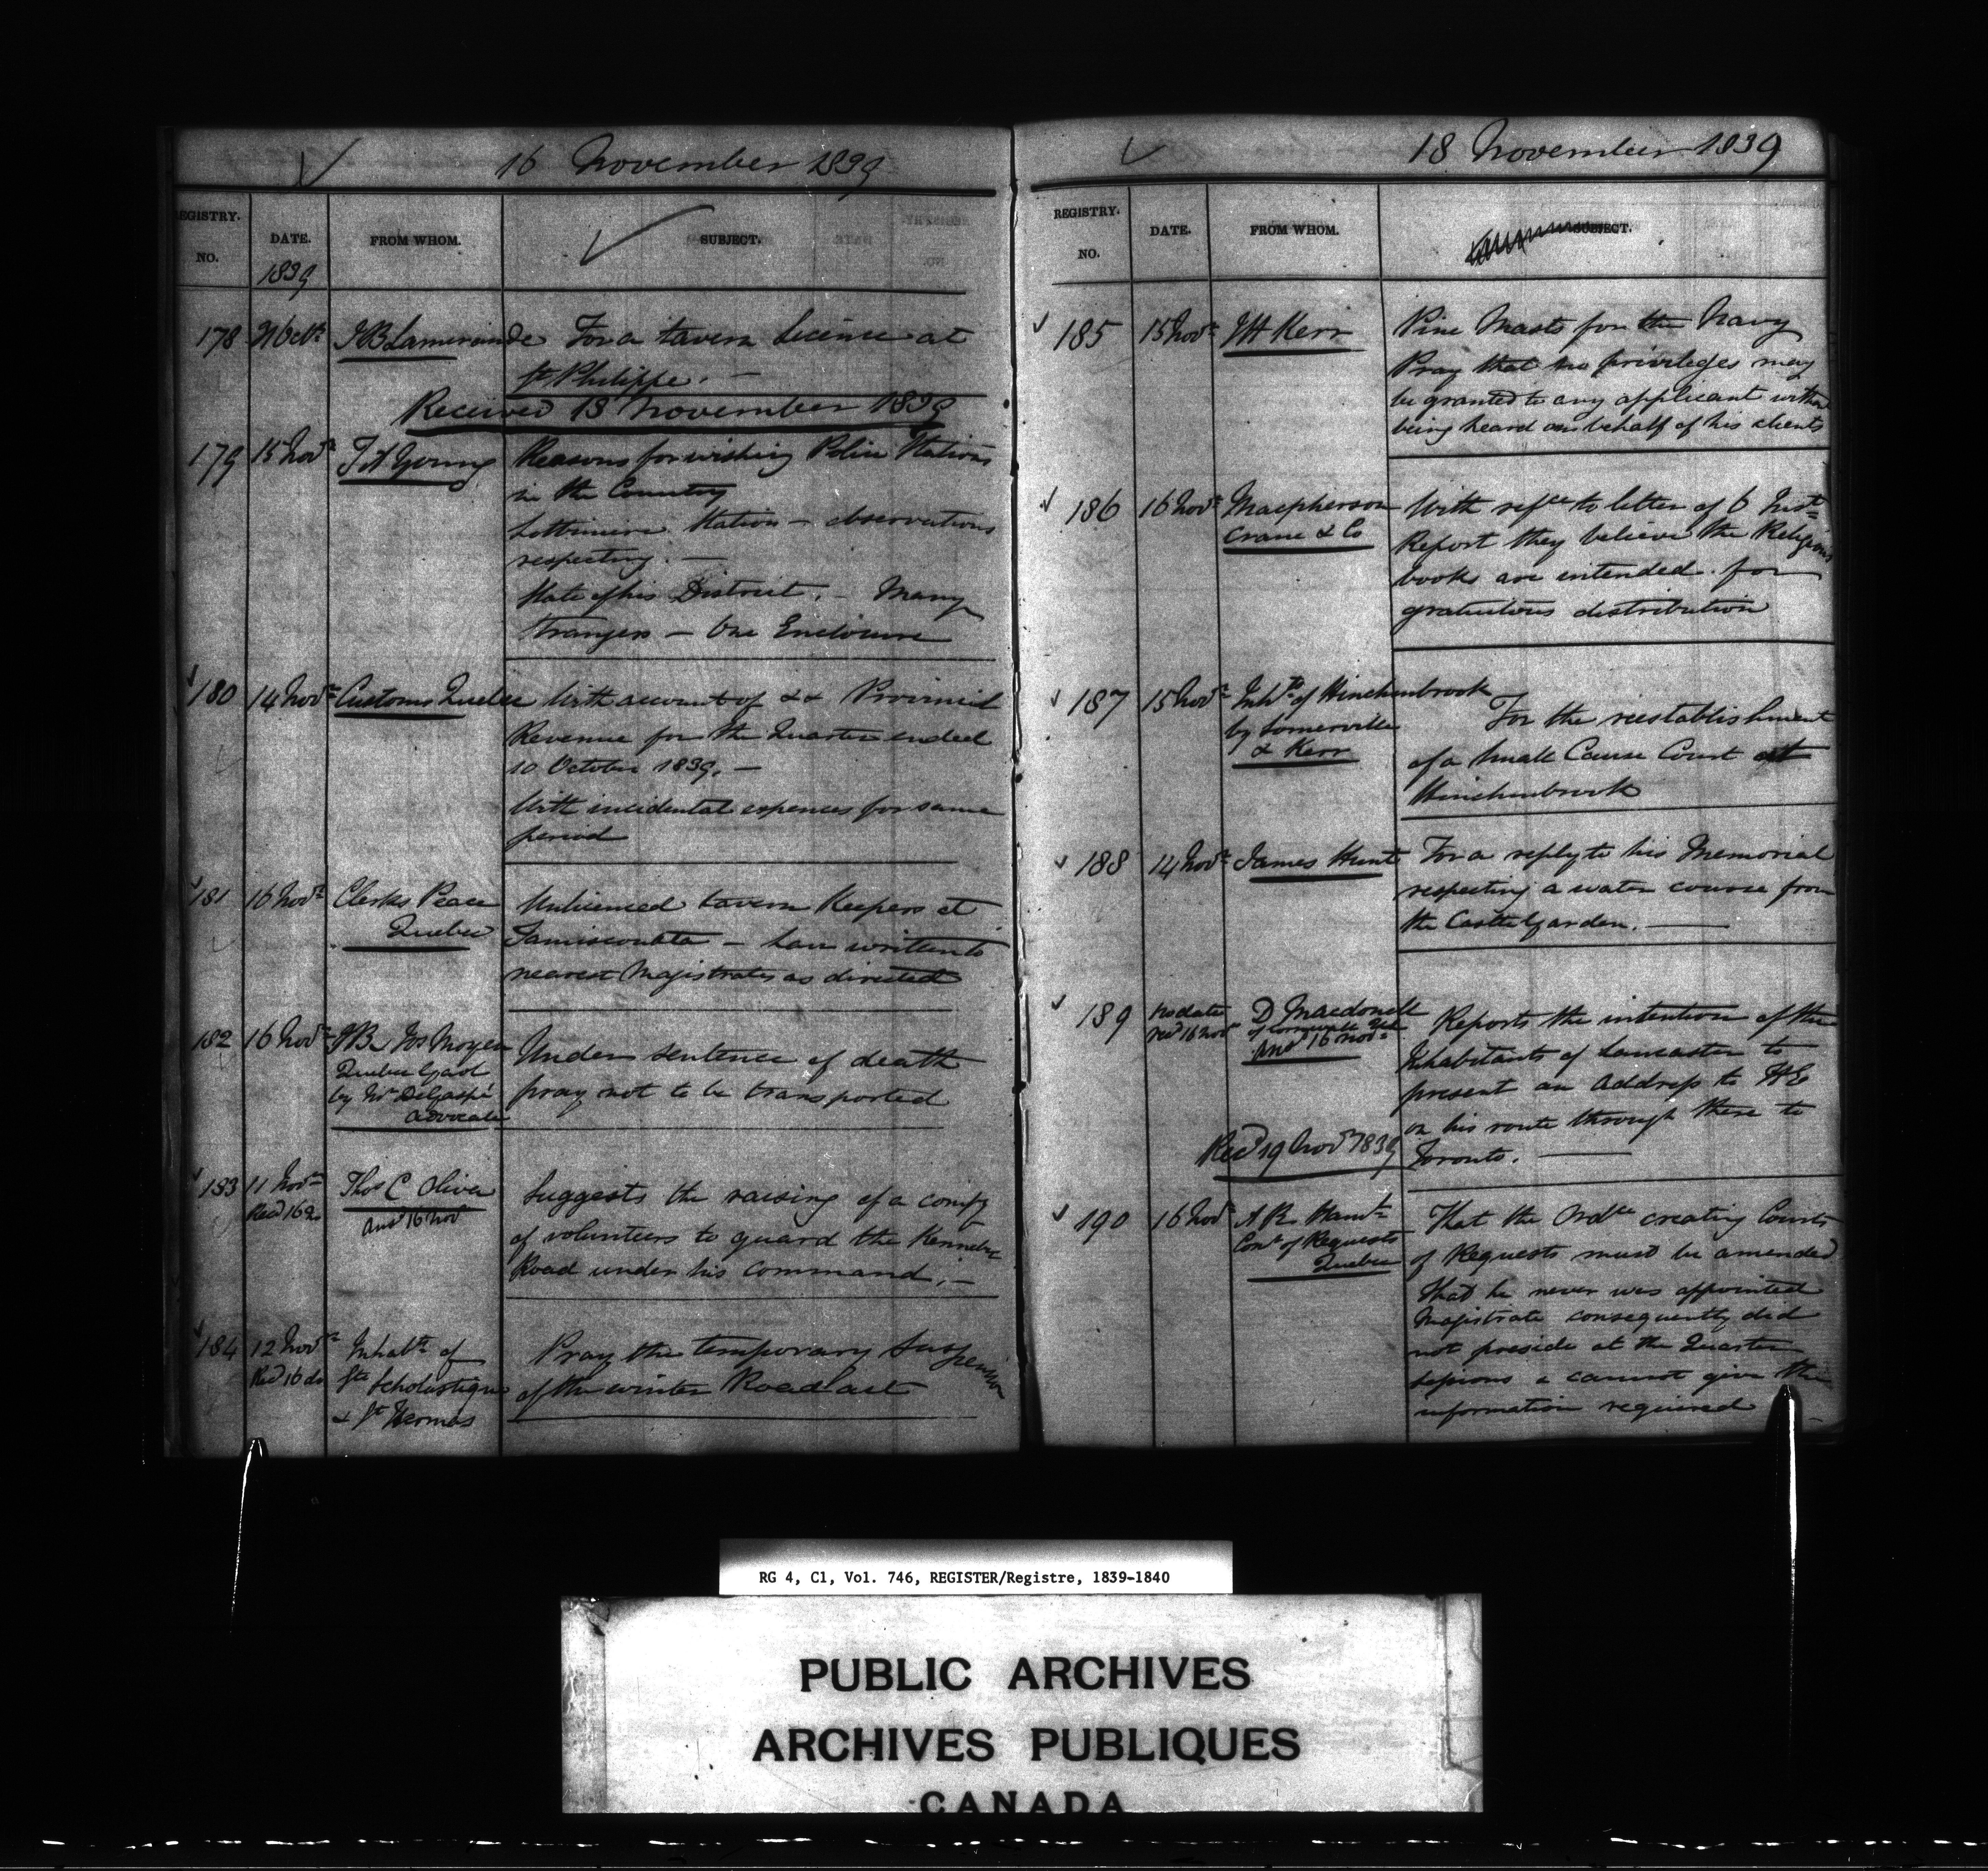 16 November 1839
REGISTRY. NO.
DATE. 1839
FROM WHOM.
SUBJECT.
178 Octr. J B Lamirande For a tavern licence at
St Philippe. —
Received 18 November 1839
179 15 Novr T A Young Reasons for wishing Police Stations
in the Country
Lotbiniere Station — observations
respecting. —
State of his District. — Many
Strangers — One Enclosure
180 14 Novr Customs Quebec With account of && Provincial
Revenue for the Quarter ended
10 October 1839. —
With incidental expences for same
period
181 16 Novr Clerks Peace Unlicenced tavern Keepers at
Quebec Temiscouata — have written to
nearest Magistrates as directed
182 16 Novr J B Jos Moyen Under sentence of death
Quebec Gaol
by Mr DeGaspé pray not to be transported
advocate
183 11 Novr Thos C Oliver Suggests the raising of a compy
Recd 16 do Ansd 16 Novr of volunteers to guard the Kennebec
Road under his command. —
184 12 Novr Inhabts of Pray the temporary Suspension
Recd 16 do Ste Scholastique of the winter Road act
& St Hermas
18 November 1839
REGISTRY. NO.
DATE.
FROM WHOM.
SUBJECT.
185 15 Novr Kerr Pine Masts for the Navy
Pray that no privileges may
be granted to any applicant without
being heard on behalf of his clients
186 16 Novr Macpherson With refce to letter of 6 Inst
Crane & Co Report they believe the Religious
books are intended for
gratuitous distribution
187 15 Novr Inhts of Hinchinbrook
by Somerville For the reestablishment
& Kerr of a Small Cause Court at
Hinchinbrook
188 14 Novr James Hunt For a reply to his Memorial
respecting a water course from
the Castle Garden. —
189 no date D Macdonell Reports the intention of the
recd 16 Novr of Cornwall
Ansd 16 Novr Inhabitants of Lancaster to
present an Address to HE
on his route through there to
Toronto. —
Recd 19 Novr 1839
190 16 Novr A R Hamel That the Ordce creating Courts
Comr of Requests of Requests must be amended
Quebec That he never was appointed
Magistrate consequently did
not preside at the Quarter
sessions & cannot give the
information required
RG 4, C1, Vol. 746, REGISTER/Registre, 1839-1840
PUBLIC ARCHIVES
ARCHIVES PUBLIQUES
CANADA